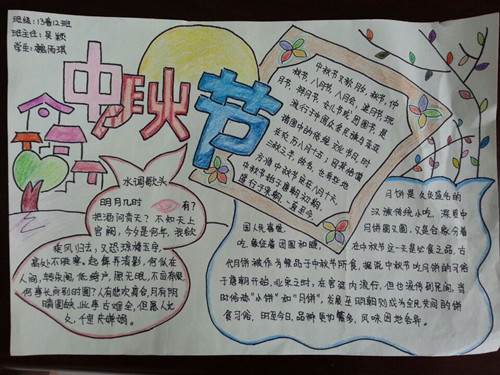 班级：13春12班
班主任：吴颖
学生：
中秋节
中秋节又称月夕，秋节，仲
秋节，八月节，八月会，追月节，玩
月节，拜月节，女儿节或，团圆节，是
流行于中国众多民族与东亚
诸国中的传统文化节日，时
在农历八月十五；因其恰值
三秋之半，故名，也有些地
方将中秋节定在八月十六。
中秋节始于唐朝初期，
盛行于宋朝，一直至今。
水调歌头
明月几时有？
把酒问青天？不知天上
宫阙，今夕是何年，我欲
乘风归去，又恐琼楼玉宇，
高处不胜寒，起舞弄清影，何似在
人间，转朱阁，低绮户，照无眠，不应有恨，
何事长向别时圆？人有悲欢离合，月有阴
晴圆缺，此事古难全，但愿人长
久，千里共婵娟。
月饼是久负盛名的
汉族传统小吃，深受中
国人民喜爱，月饼圆又圆，又是合家分着
吃，象征着团圆和睦，在中秋节这一天是必食之品，古
代月饼被作为祭品于中秋节所食，据说中秋节吃月饼的习俗
于唐朝开始，北宋之时，在宫廷内流行，但也流传到民间，当
时俗称“小饼”和“月团”，发展至明朝则成为全民共同的饮
食习俗，时至今日，品种更加繁多，风味因地各异。